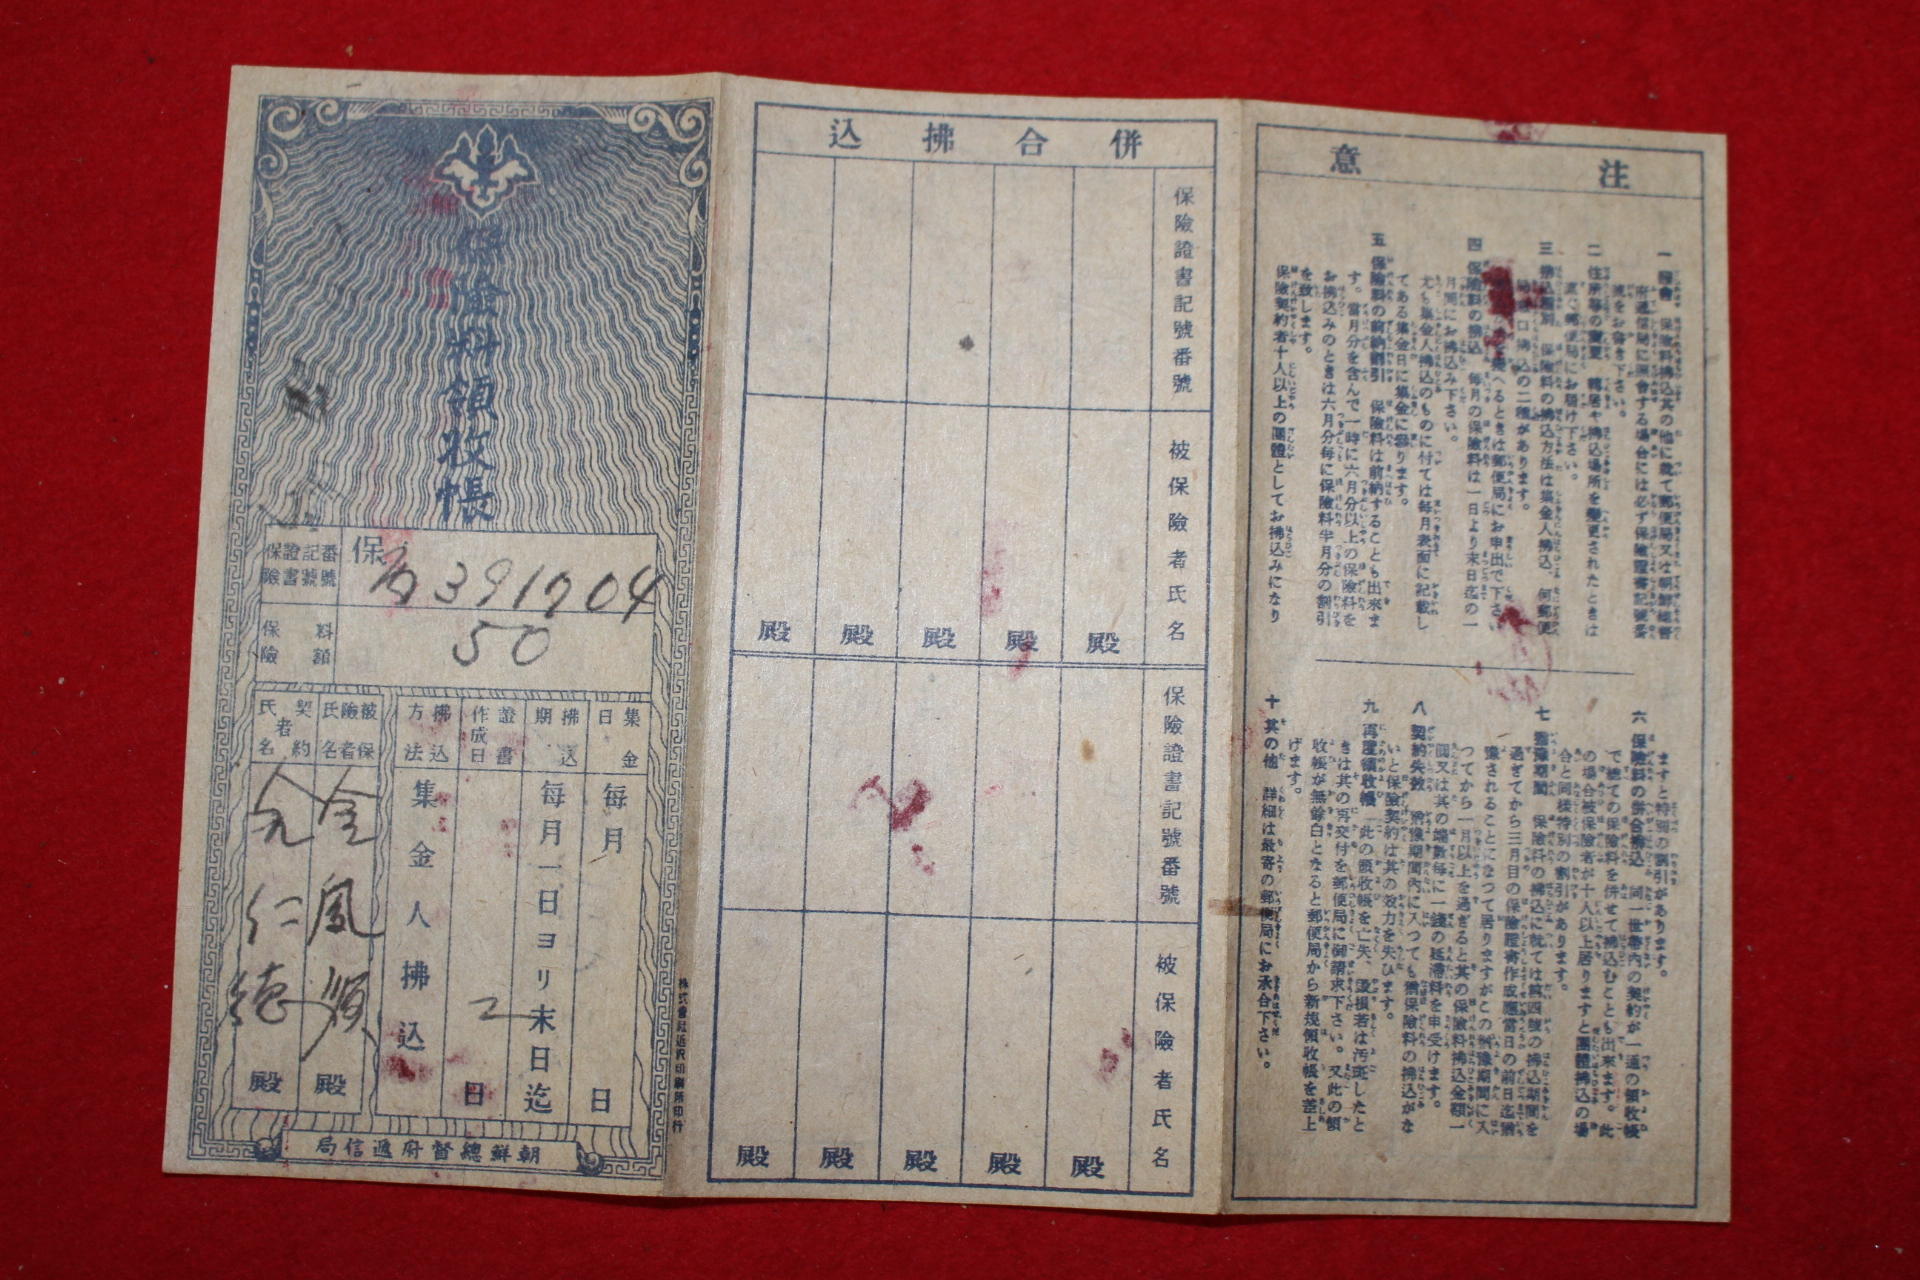 保險料領收帳
保險證書記號番號
保 391704
保險料額
50
集金日
每月 日
拂込期
每月一日ヨリ末日迄
證書作成日
2 日
拂込方法
集金人拂込
被保險者氏名
金鳳 殿
契約者氏名
仁德 殿
朝鮮總督府遞信局
株式會社近沢印刷所印行
併合拂込
保險證書記號番號
被保險者氏名
殿 殿 殿 殿 殿
保險證書記號番號
被保險者氏名
殿 殿 殿 殿 殿
注意
一 照會 保險料拂込其の他に就て郵便局又は朝鮮總督
府遞信局に照會する場合には必ず保險證書記號番
號をお書き下さい。
二 住所等の變更 轉居や拂込場所を變更されたときは
直ぐ郵便局にお届け下さい。
三 拂込種別 保險料の拂込方法は集金人拂込、何郵便
口拂込の二種があります。
へるときは郵便局にお申出で下さい
四 保險料の拂込 每月の保險料は一日より末日迄の一
月間にお拂込み下さい。
尤も集金人拂込のものに付ては每月表面に記載し
てある集金日に集金に參ります。
五 保險料の前納割引 保險料は前納することも出來ま
す。當月分を含んで一時に六月分以上の保險料を
お拂込みのときは六月分每に保險料半月分の割引
を致します。
保險契約者十人以上の團體としてお拂込みになり
ますと特別の割引があります。
六 保險料の併合拂込 同一世帶內の契約が一通の領收帳
で總ての保險料を併せて拂込むことも出來ます。此
の場合被保險者が十人以上居りますと團體拂込の場
合と同樣特別の割引があります。
七 猶豫期間 保險料の拂込に就ては第四號の拂込期間を
過ぎてから三月目の保險證書作成應當日の前日迄猶
豫されることになつて居りますがこの猶豫期間に入
つてから一月以上を過ぎると其の保險料拂込金額一
圓又は其の端數每に一錢の延滯料を申受けます。
八 契約失效 猶豫期間內に入つても猶保險料の拂込がな
いと保險契約は其の效力を失ひます。
九 再度領收帳 此の領收帳を亡失、毀損若は汚斑したと
きは其の再交付を郵便局に御請求下さい。又此の領
收帳が無餘白となると郵便局から新規領收帳を差上
げます。
十 其の他 詳細は最寄の郵便局にお承合下さい。